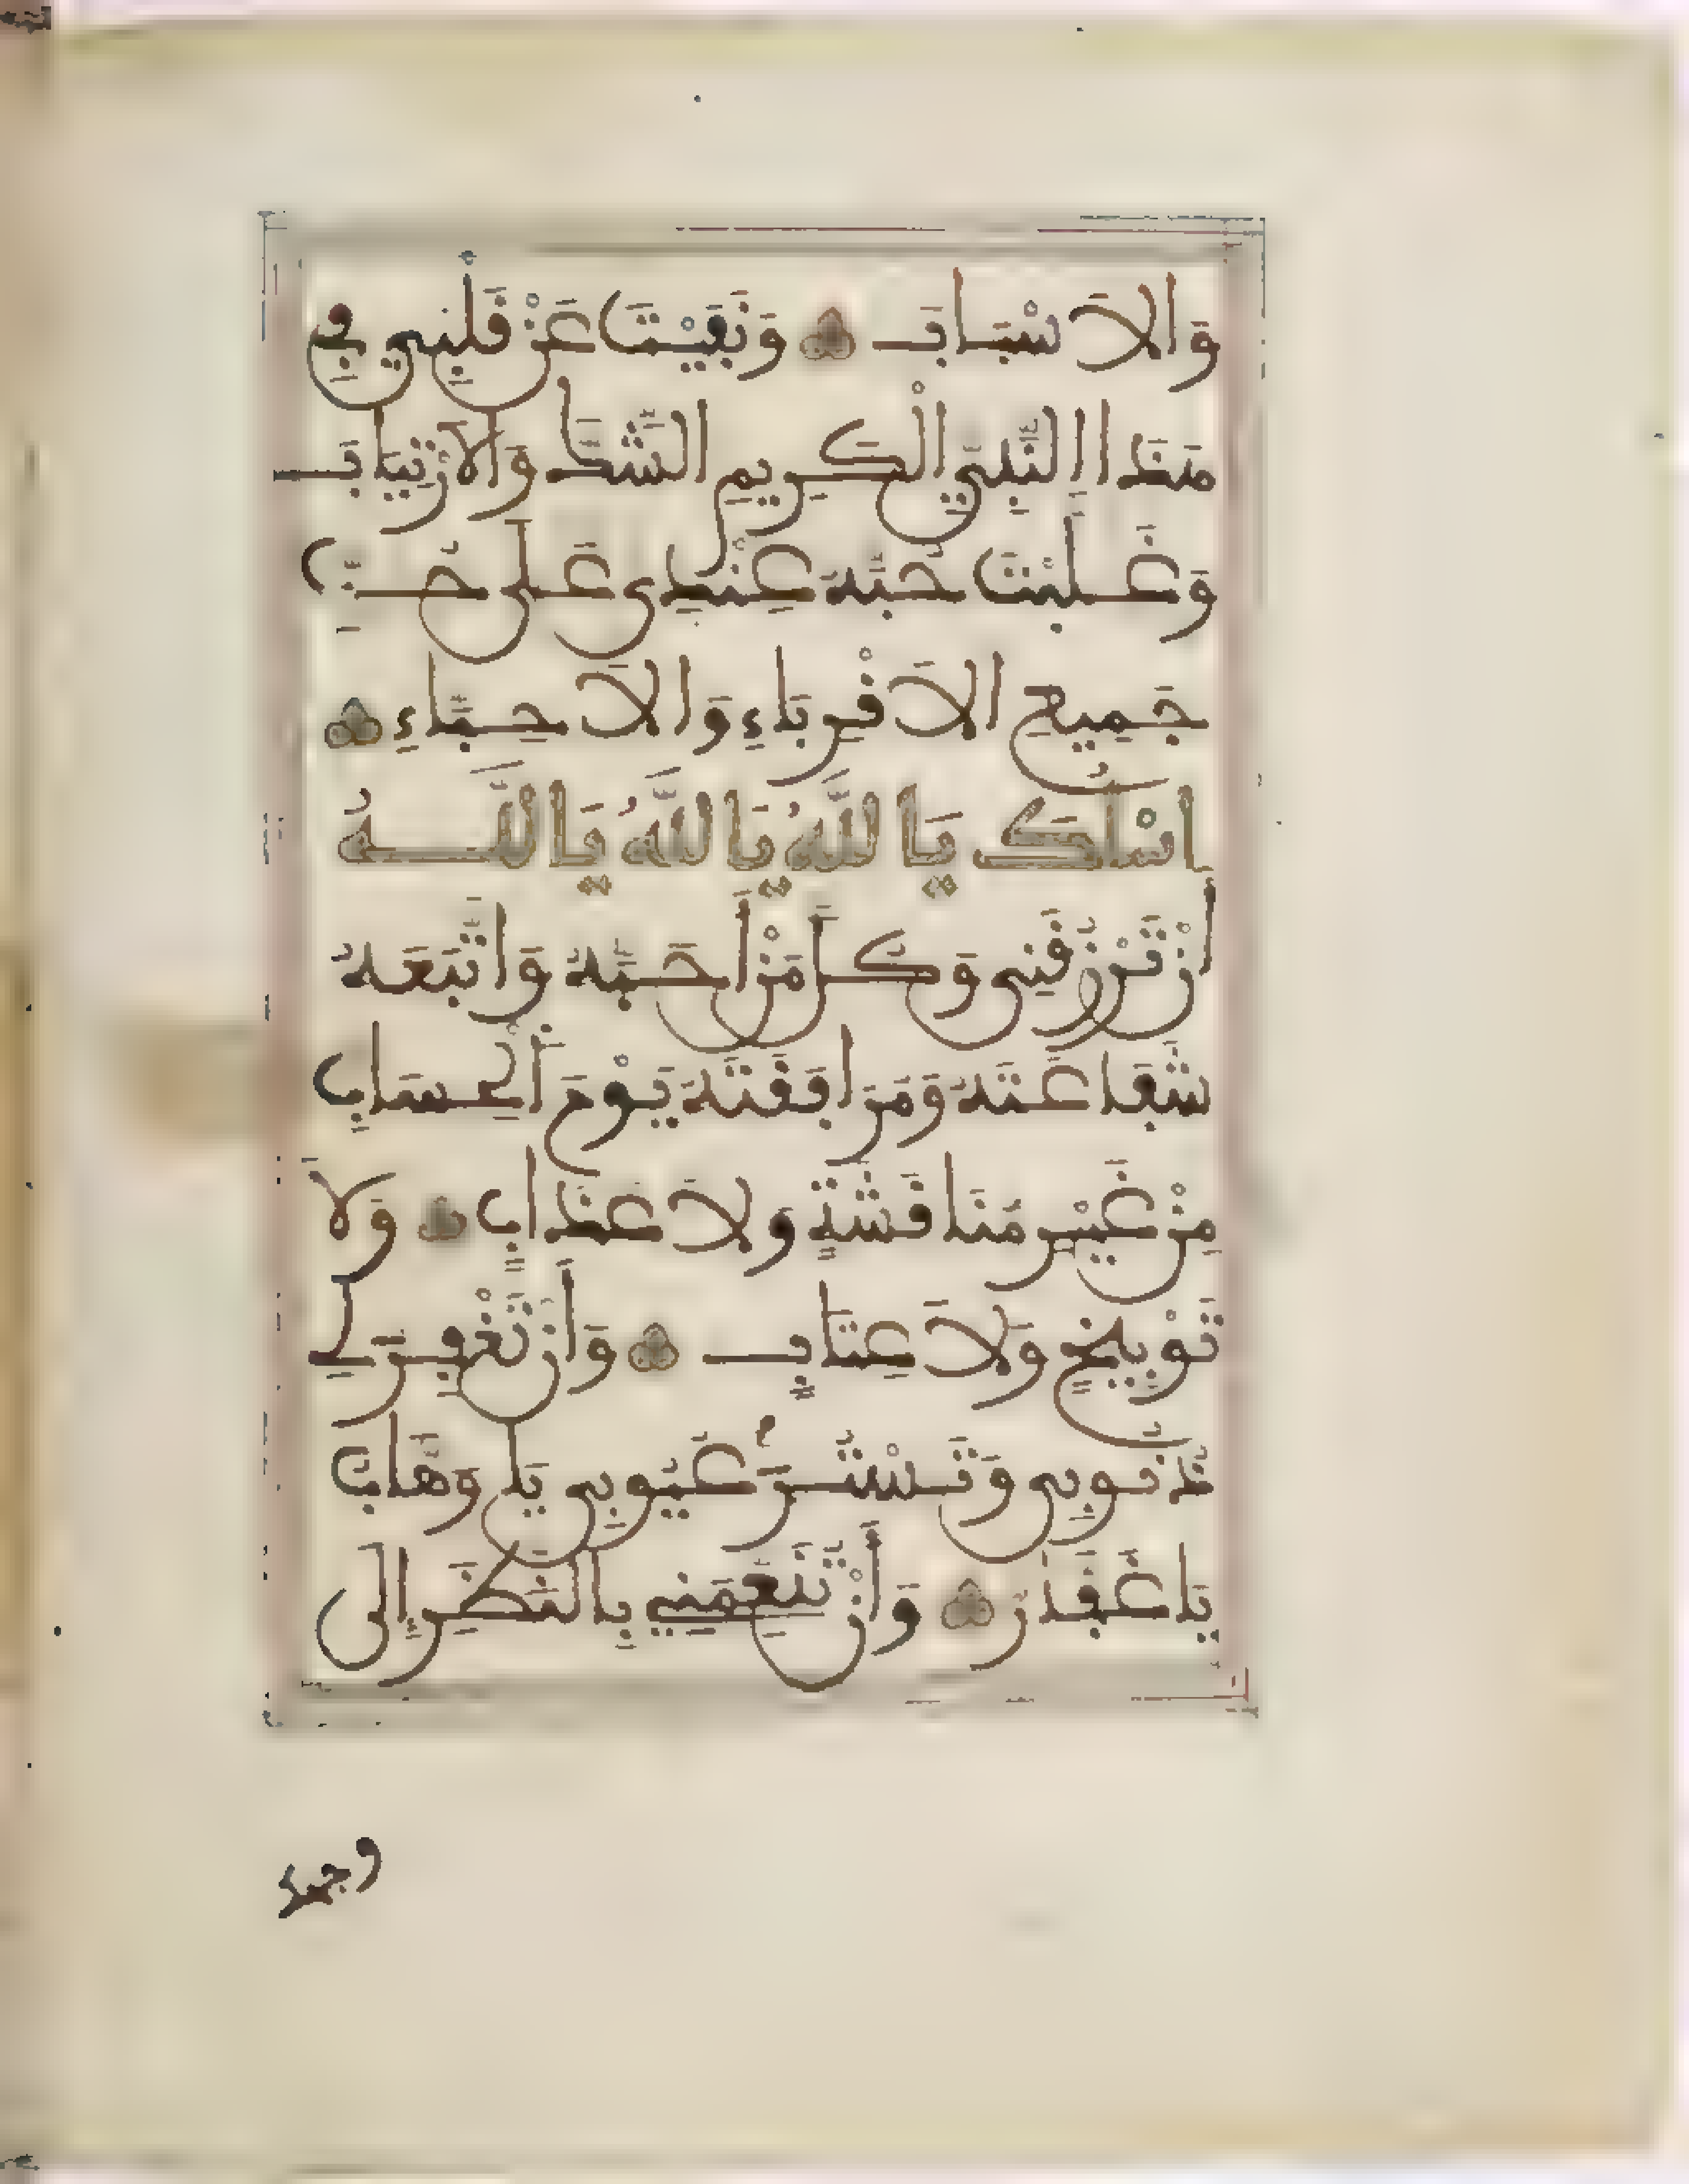 وَالاَسْبَابَ وَنَفَيْتَ عَنْ قَلْبِي فِي
هَذَا النَّبِيِّ الْكَرِيمِ الشَّكَّ وَالاِرْتِيَابَ
وَغَلَّبْتَ حُبَّهُ عِنْدِي عَلَى حُبِّ
جَمِيعِ الاَقْرِبَاءِ وَالاَحِبَّاءِ
اسْأَلُكَ يَا اللَّهُ يَا اللَّهُ يَا اللَّهُ
أَنْ تَرْزُقَنِي وَكُلَّ مَنْ أَحَبَّهُ وَاتَّبَعَهُ
شَفَاعَتَهُ وَمُرَافَقَتَهُ يَوْمَ الْحِسَابِ
مِنْ غَيْرِ مُنَاقَشَةٍ وَلاَ عَذَابٍ وَلاَ
تَوْبِيخٍ وَلاَ عِتَابٍ وَأَنْ تَغْفِرَ لِي
ذُنُوبِي وَتَسْتُرَ عُيُوبِي يَا وَهَّابُ
يَا غَفَّارُ وَأَنْ تُنَعِّمَنِي بِالنَّظَرِ إِلَى
وجهك